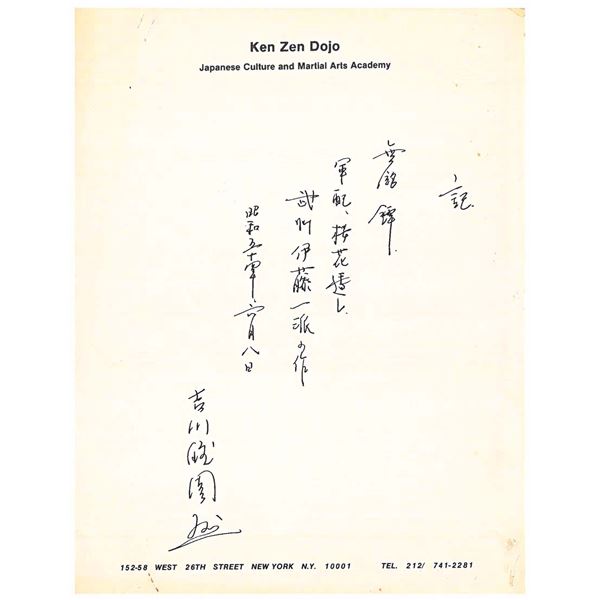 Ken Zen Dojo
Japanese Culture and Martial Arts Academy
記
無銘 鐔
軍配、桜花透し
武州伊藤一派の作
昭和五十年六月八日
吉川
152-58 WEST 26TH STREET NEW YORK N.Y. 10001 TEL. 212/ 741-2281